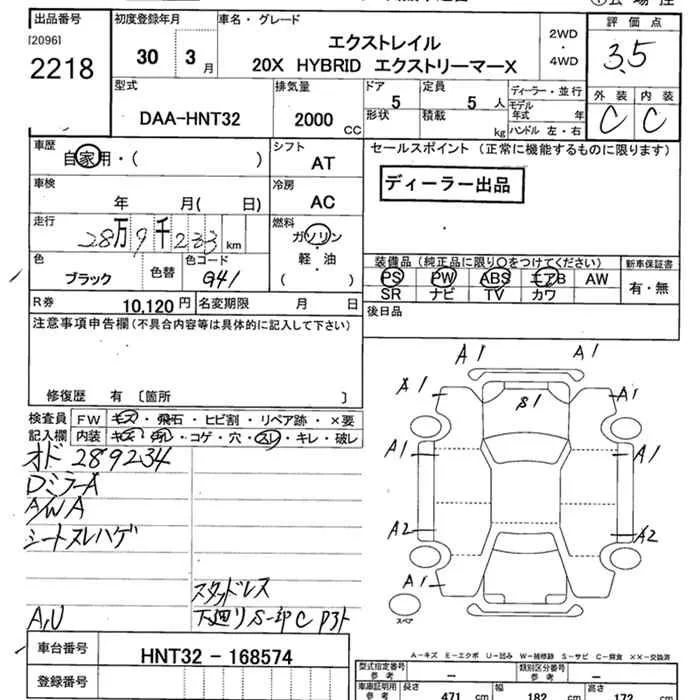 出品番号
[2096]
2218
初度登録年月
30 3 月
車名・グレード
エクストレイル
20X HYBRID エクストリーマーX
2WD
・
4WD
評価点
3.5
外装 内装
C C
型式
DAA-HNT32
排気量
2000 CC
ドア
5
定員
5 人
形状
積載
kg
ディーラー・並行
モデル年式 年
ハンドル 左・右
車歴
自家用・( )
シフト
AT
車検
年 月( 日)
冷房
AC
走行
28万9千233 km
燃料
ガソリン
・
軽・油
( )
色
ブラック
色替
色コード
G41
R券 10,120円
名変期限 月 日
セールスポイント (正常に機能するものに限ります)
ディーラー出品
装備品(純正品に限り○をつけてください)
PS PW ABS エアB AW
SR ナビ TV カワ
新車保証書
有・無
後日品
注意事項申告欄(不具合内容等は具体的に記入して下さい)
修復歴 有 [箇所 ]
検査員
記入欄
FW キズ・飛石・ヒビ割・リペア跡・×要
内装 キズ・汚れ・コゲ・穴・スレ・キレ・破レ
オド289234
DミラーA
A/WA
シートスレハゲ
スタッドレス
A,U
下廻りS一部CPクト
A1 A1
A1 S1 A1
A1 A1
A2 A2
A1
スペア
A-キズ E-エクボ U-凹み W-補修跡 S-サビ C-腐食 ××-交換済
車台番号
HNT32-168574
登録番号
型式指定番号
参考
--
類別区分番号
参考
--
車庫証明用
参考
長さ 471 cm
幅 182 cm
高さ 172 cm